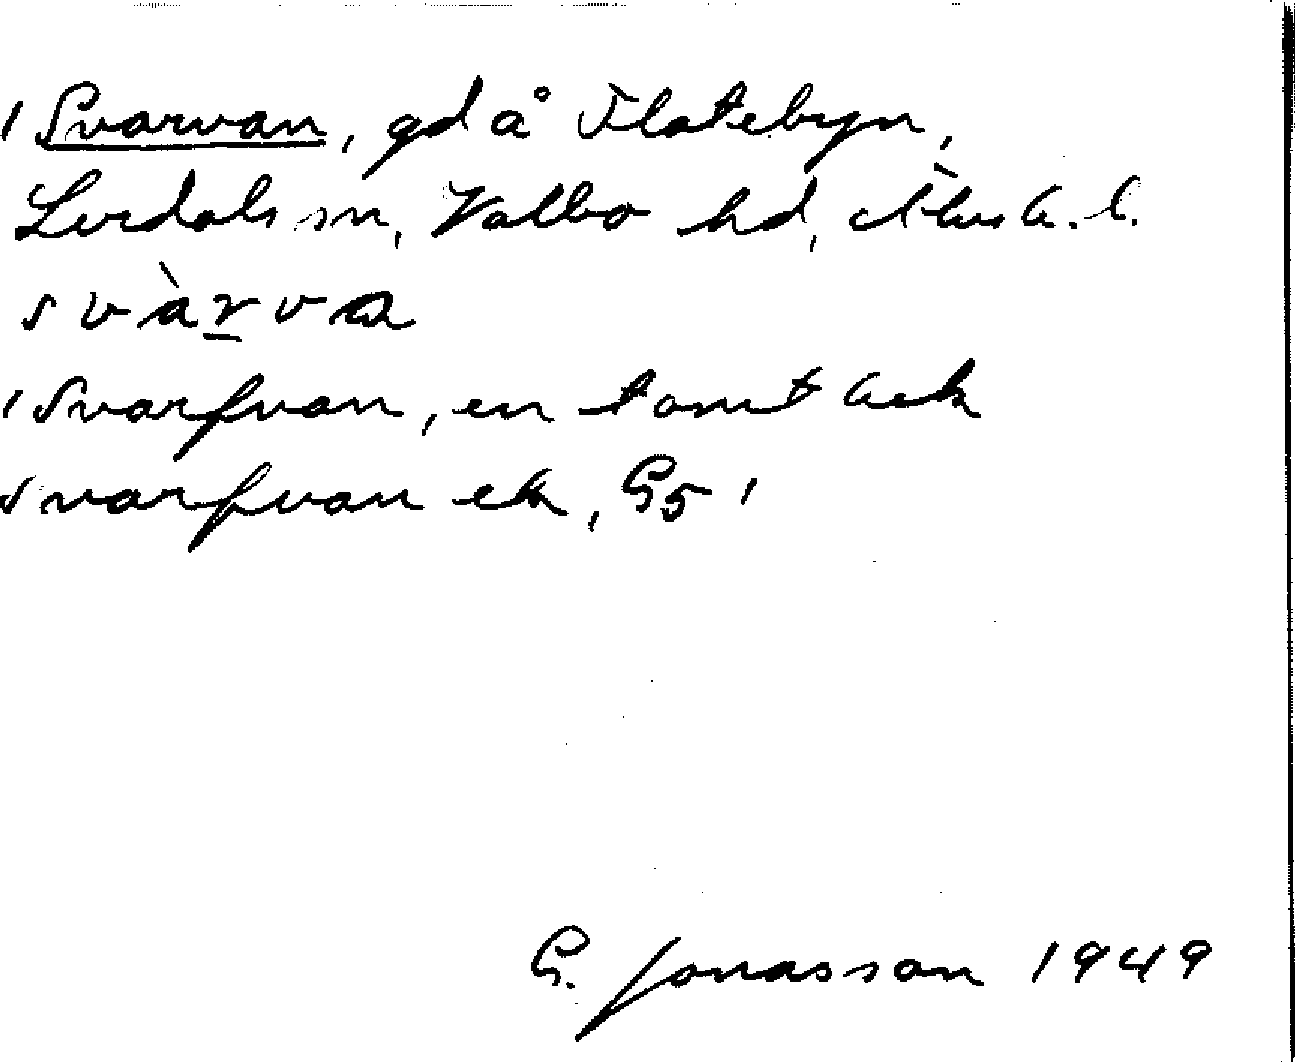 Svarvan, gd å Flatebyn,
Lerdals sn, Valbo hd, Älvsb. l.
svàrva
Svarfvan, en tomt och
svarfvan ek, G5
G. Jonasson 1949